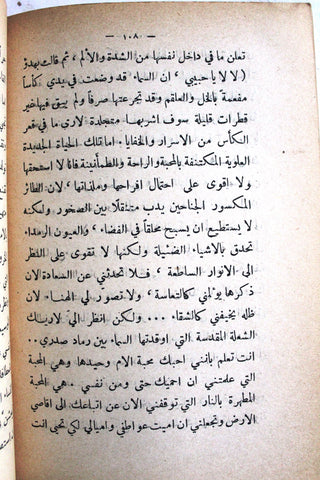 — ١٠٨ —
تعلن ما في داخل نفسها من الشدة والألم ، ثم قالت بهدوّ
( لا لا يا حبيبي ، ان السماء قد وضعت في يدي كأساً
مفعمة بالخل والعلقم وقد تجرعتها صرفاً ولم يبق فيها غير
قطرات قليلة سوف اشربها متجلدة لارى ما في قعر
الكأس من الاسرار والخفايا . اما تلك الحياة الجديدة
العلوية المكتنفة بالمحبة والراحة والطمأنينة فانا لا استحقها
ولا اقوى على احتمال افراحها وملذاتها ، لان الطائر
المكسور الجناحين يدب متنقلاً بين الصخور ولكنه
لا يستطيع ان يسبح محلقاً في الفضاء ، والعيون الرمداء
تحدق بالاشياء الضئيلة ولكنها لا تقوى على النظر
الى الانوار الساطعة ، فلا تحدثني عن السعادة لان
ذكرها يؤلمني كالتعاسة ، ولا تصور لي الهناء لان
ظله يخيفني كالشقاء ... ولكن انظر الي لاريك
الشعلة المقدسة التي اوقدتها السماء بين رماد صدري ..
انت تعلم بانني احبك محبة الام وحيدها وهي المحبة
التي علمتني ان احميك حتى ومن نفسي . هي المحبة
المطهرة بالنار التي توقفني الان عن اتباعك الى اقاصي
الارض وتجعلني ان اميت عواطفي واميالي لكي تحيى انت